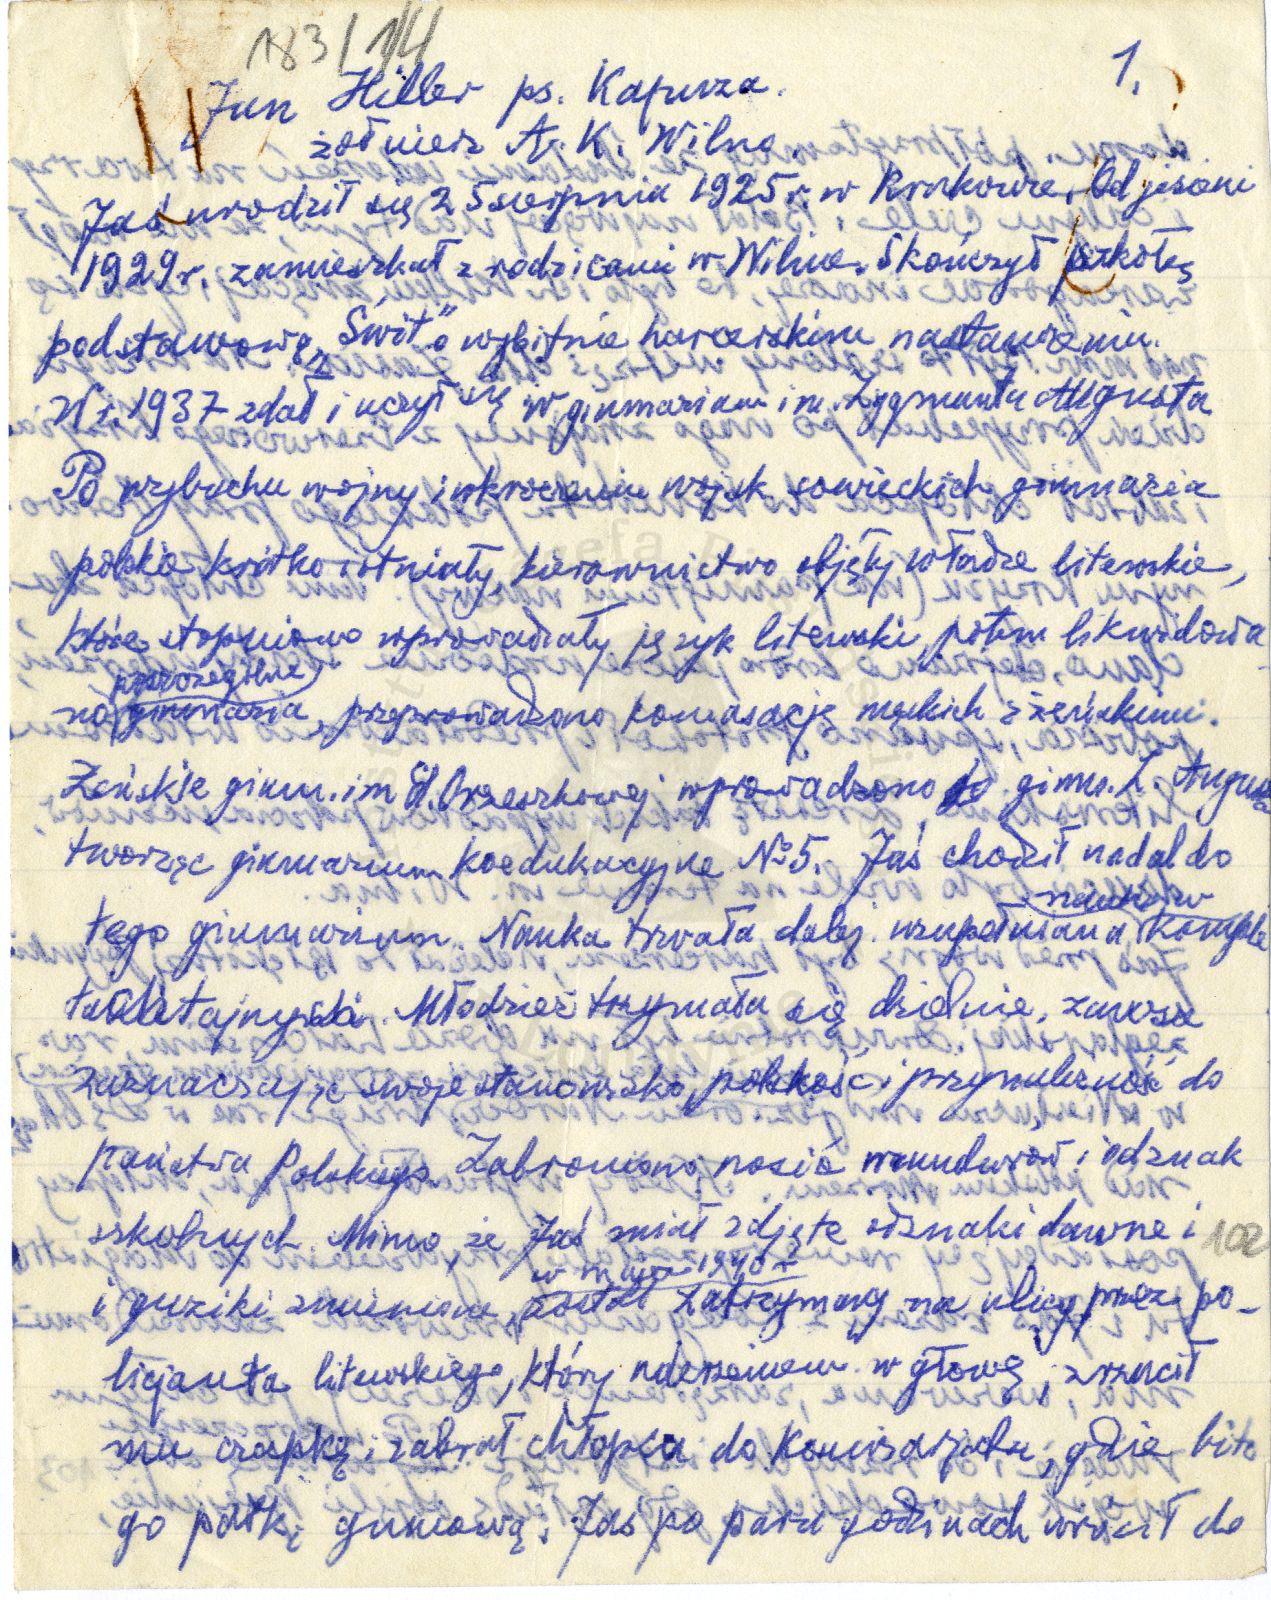 183/14
1.
Jan Hiller ps. Kapusza.
żołnierz A. K. Wilno.
Jaś urodził się 25 sierpnia 1925 r. w Krakowie. Od jesieni
1929 r. zamieszkał z rodzicami w Wilnie. Skończył szkołę
podstawową „Świt" o wybitnie harcerskim nastawieniu.
W r. 1937 zdał i uczył się w gimnazjum im. Zygmunta Augusta
Po wybuchu wojny i wkroczeniu wojsk sowieckich gimnazja
polskie krótko istniały, kierownictwo objęły władze litewskie,
które stopniowo wprowadzały język litewski, potem likwidowa-
poszczególne
no gimnazja, przeprowadzono komasację męskich z żeńskimi.
Żeńskie gimn. im El. Orzeszkowej wprowadzono do gimn. Z. Augusta
tworząc gimnazjum koedukacyjne No 5. Jaś chodził nadal do
tego gimnazjum. Nauka trwała dalej uzupełniana nauką w komple-
tach tajnych. Młodzież trzymała się dzielnie, zawsze
zaznaczając swoje stanowisko, polskość i przynależność do
państwa Polskiego. Zabroniono nosić mundurów i odznak
szkolnych. Mimo, że Jaś miał zdjęte odznaki dawne i
102
w maju 1940 r
i guziki zmienione, został zatrzymany na ulicy przez po-
licjanta litewskiego, który uderzeniem w głowę, zrzucił
mu czapkę i zabrał chłopca do komisarjatu, gdzie bito
go pałką gumową. Jaś po paru godzinach wrócił do